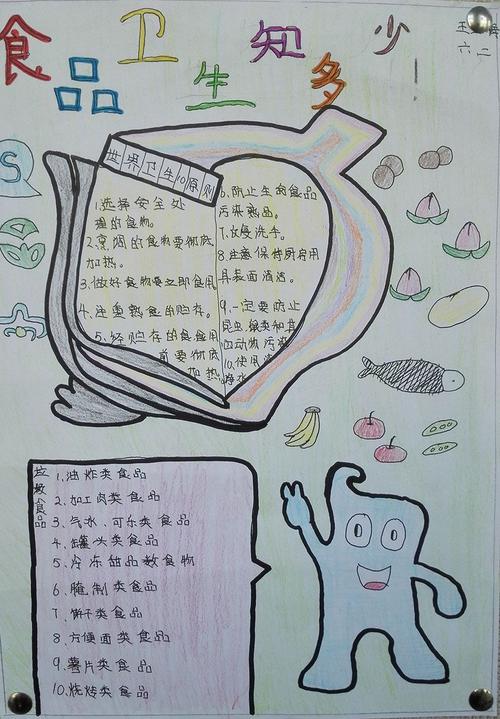 食品卫生知多少
王
六二
S
世界卫生10原则
1.选择安全处
理的食物。
2.烹调的食物要彻底
加热。
3.做好食物要立即食用
4.注意熟食的贮存。
5.经贮存的食食用
前要彻底
加热
6.防止生肉食品
污染熟品。
7.反复洗手。
8.注意保持厨房用
具表面清洁。
9.一定要防止
昆虫、鼠类和其
他动物污染
10.使用
净水
垃圾食品
1.油炸类食品
2.加工肉类食品
3.气水、可乐类食品
4.罐头类食品
5.冷冻甜品类食物
6.腌制类食品
7.饼干类食品
8.方便面类食品
9.薯片类食品
10.烧烤类食品